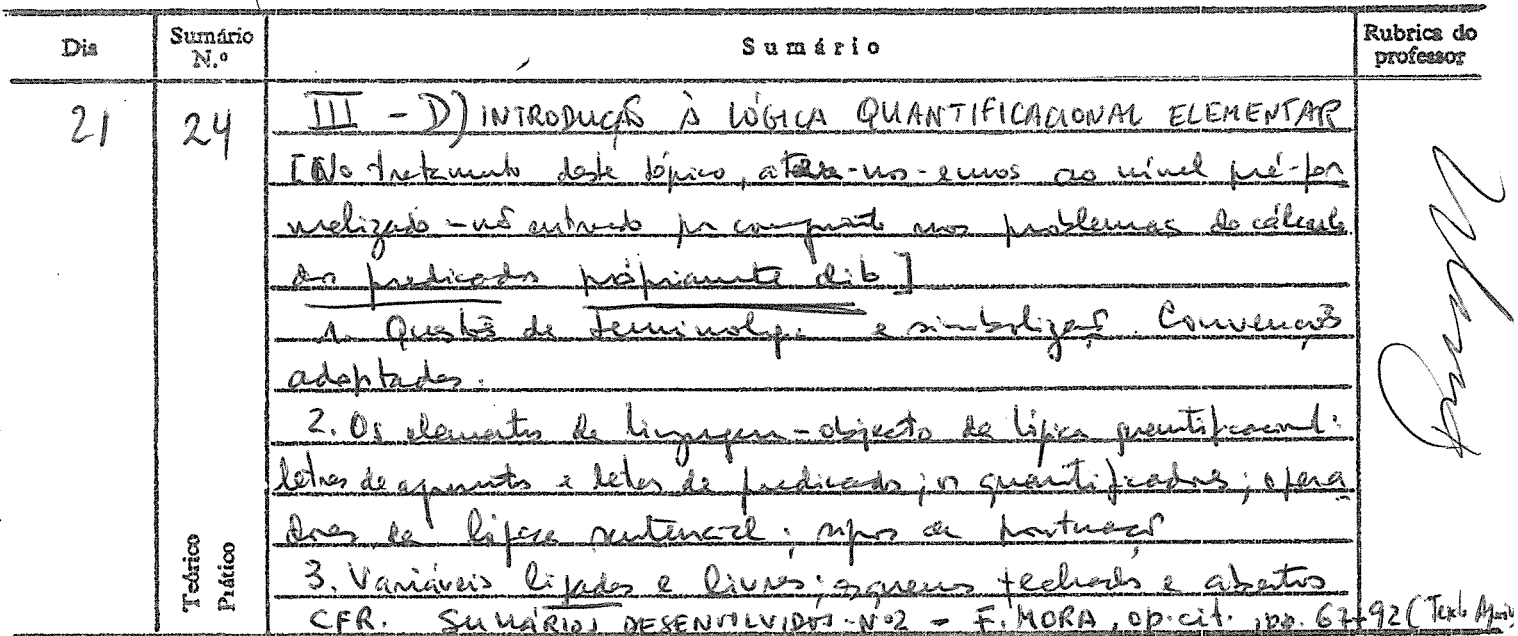 Dia Sumário N.º Sumário Rubrica do professor
21 24 III - D) INTRODUÇÃO À LÓGICA QUANTIFICACIONAL ELEMENTAR
[No tratamento deste tópico, ater-nos-emos ao nível pré-for
malizado - não entrando por conseguinte nos problemas do cálculo
dos predicados pròpriamente dito]
1. Questões de terminologia e simbolização. Convenções
adoptadas.
2. Os elementos da linguagem-objecto da lógica quantificacional:
letras de argumentos e letras de predicado; os quantificadores; opera
dores da lógica sentencial; sinais de pontuação
Teórico
Prático
3. Variáveis ligadas e livres; esquemas fechados e abertos
CFR. SUMÁRIOS DESENVOLVIDOS - Nº2 - F. MORA, op. cit., pp. 67-92 (Texto